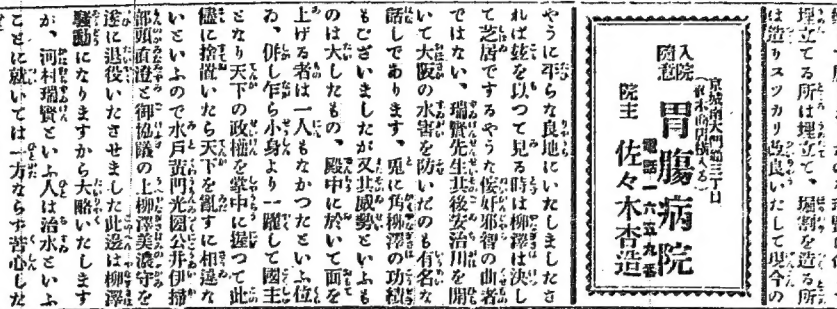 埋立てる所は埋立て、堀割を造る所
は造りスツカリ改良いたして現今の
入院
隨意
京城南大門通三丁目
胃腸病院
電話一六五九番
院主
佐々木杏造
やうに平らな良地にいたしましたさ
れば玆を以つて見る時は柳澤は決し
て芝居でするやうな侫奸邪御の曲者
ではない、瑞賢先生其後安治川を開
いて大阪の水害を防いだのも有名な
話しであります、兎に角柳澤の功績
もございましたが又其威勢といふも
のは大したもの、殿中に於いて面を
上げる者は一人もなかつたといふ位
ゐ、併し乍ら小身より一躍して國主
となり天下の政權を掌中に握つて此
儘に捨置いたら天下を亂すに相違な
いといふので水戸黄門光圀公井伊掃
部頭直澄と御協議の上柳澤美濃守を
遂に退役いたさせました此邊は柳澤
騒動になりますから大略いたします
が、河村瑞賢といふ人は治水といふ
ことに就いては一方ならず苦心した